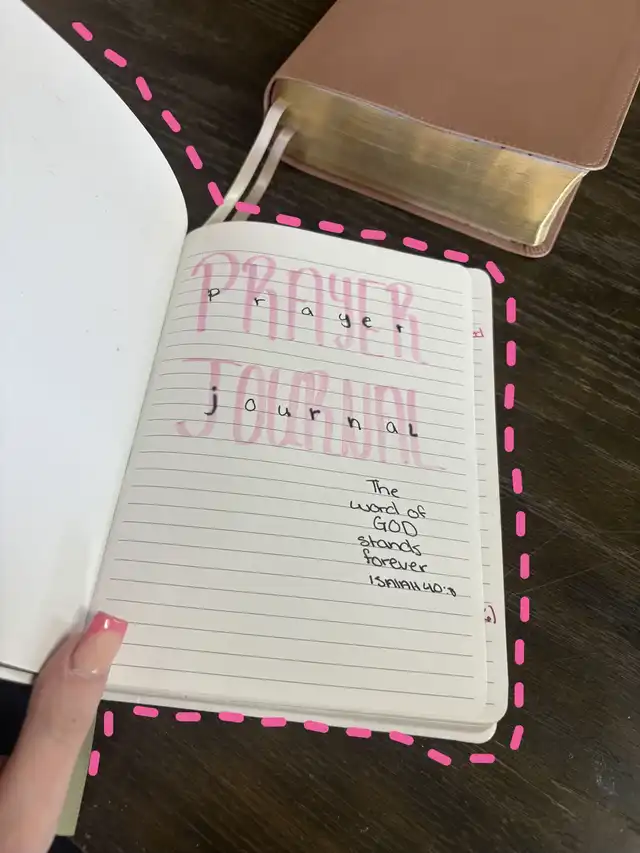 PRAYER
prayer
JOURNAL
journal
The
word of
GOD
stands
forever
ISAIAH 40:8